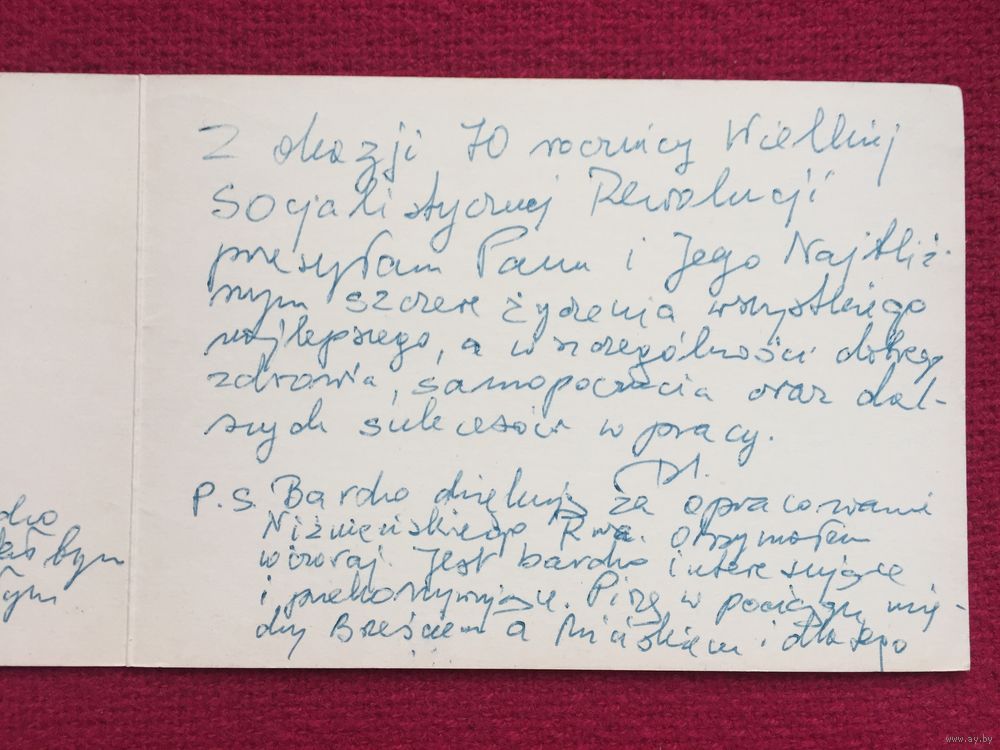 Z okazji 70 rocznicy Wielkiej
Socjalistycznej Rewolucji
przesyłam Panu i Jego Najbliż-
szym szczere życzenia wszystkiego
najlepszego, a w szczególności dobrego
zdrowia, samopoczucia oraz dal-
szych sukcesów w pracy.
P.S. Bardzo dziękuję za opracowanie
otrzymałem
wczoraj. Jest bardzo interesujące
i przekonywujące. Piszę w pociągu mię-
dzy Brześciem a Mińskiem i dlatego
www.ay.by